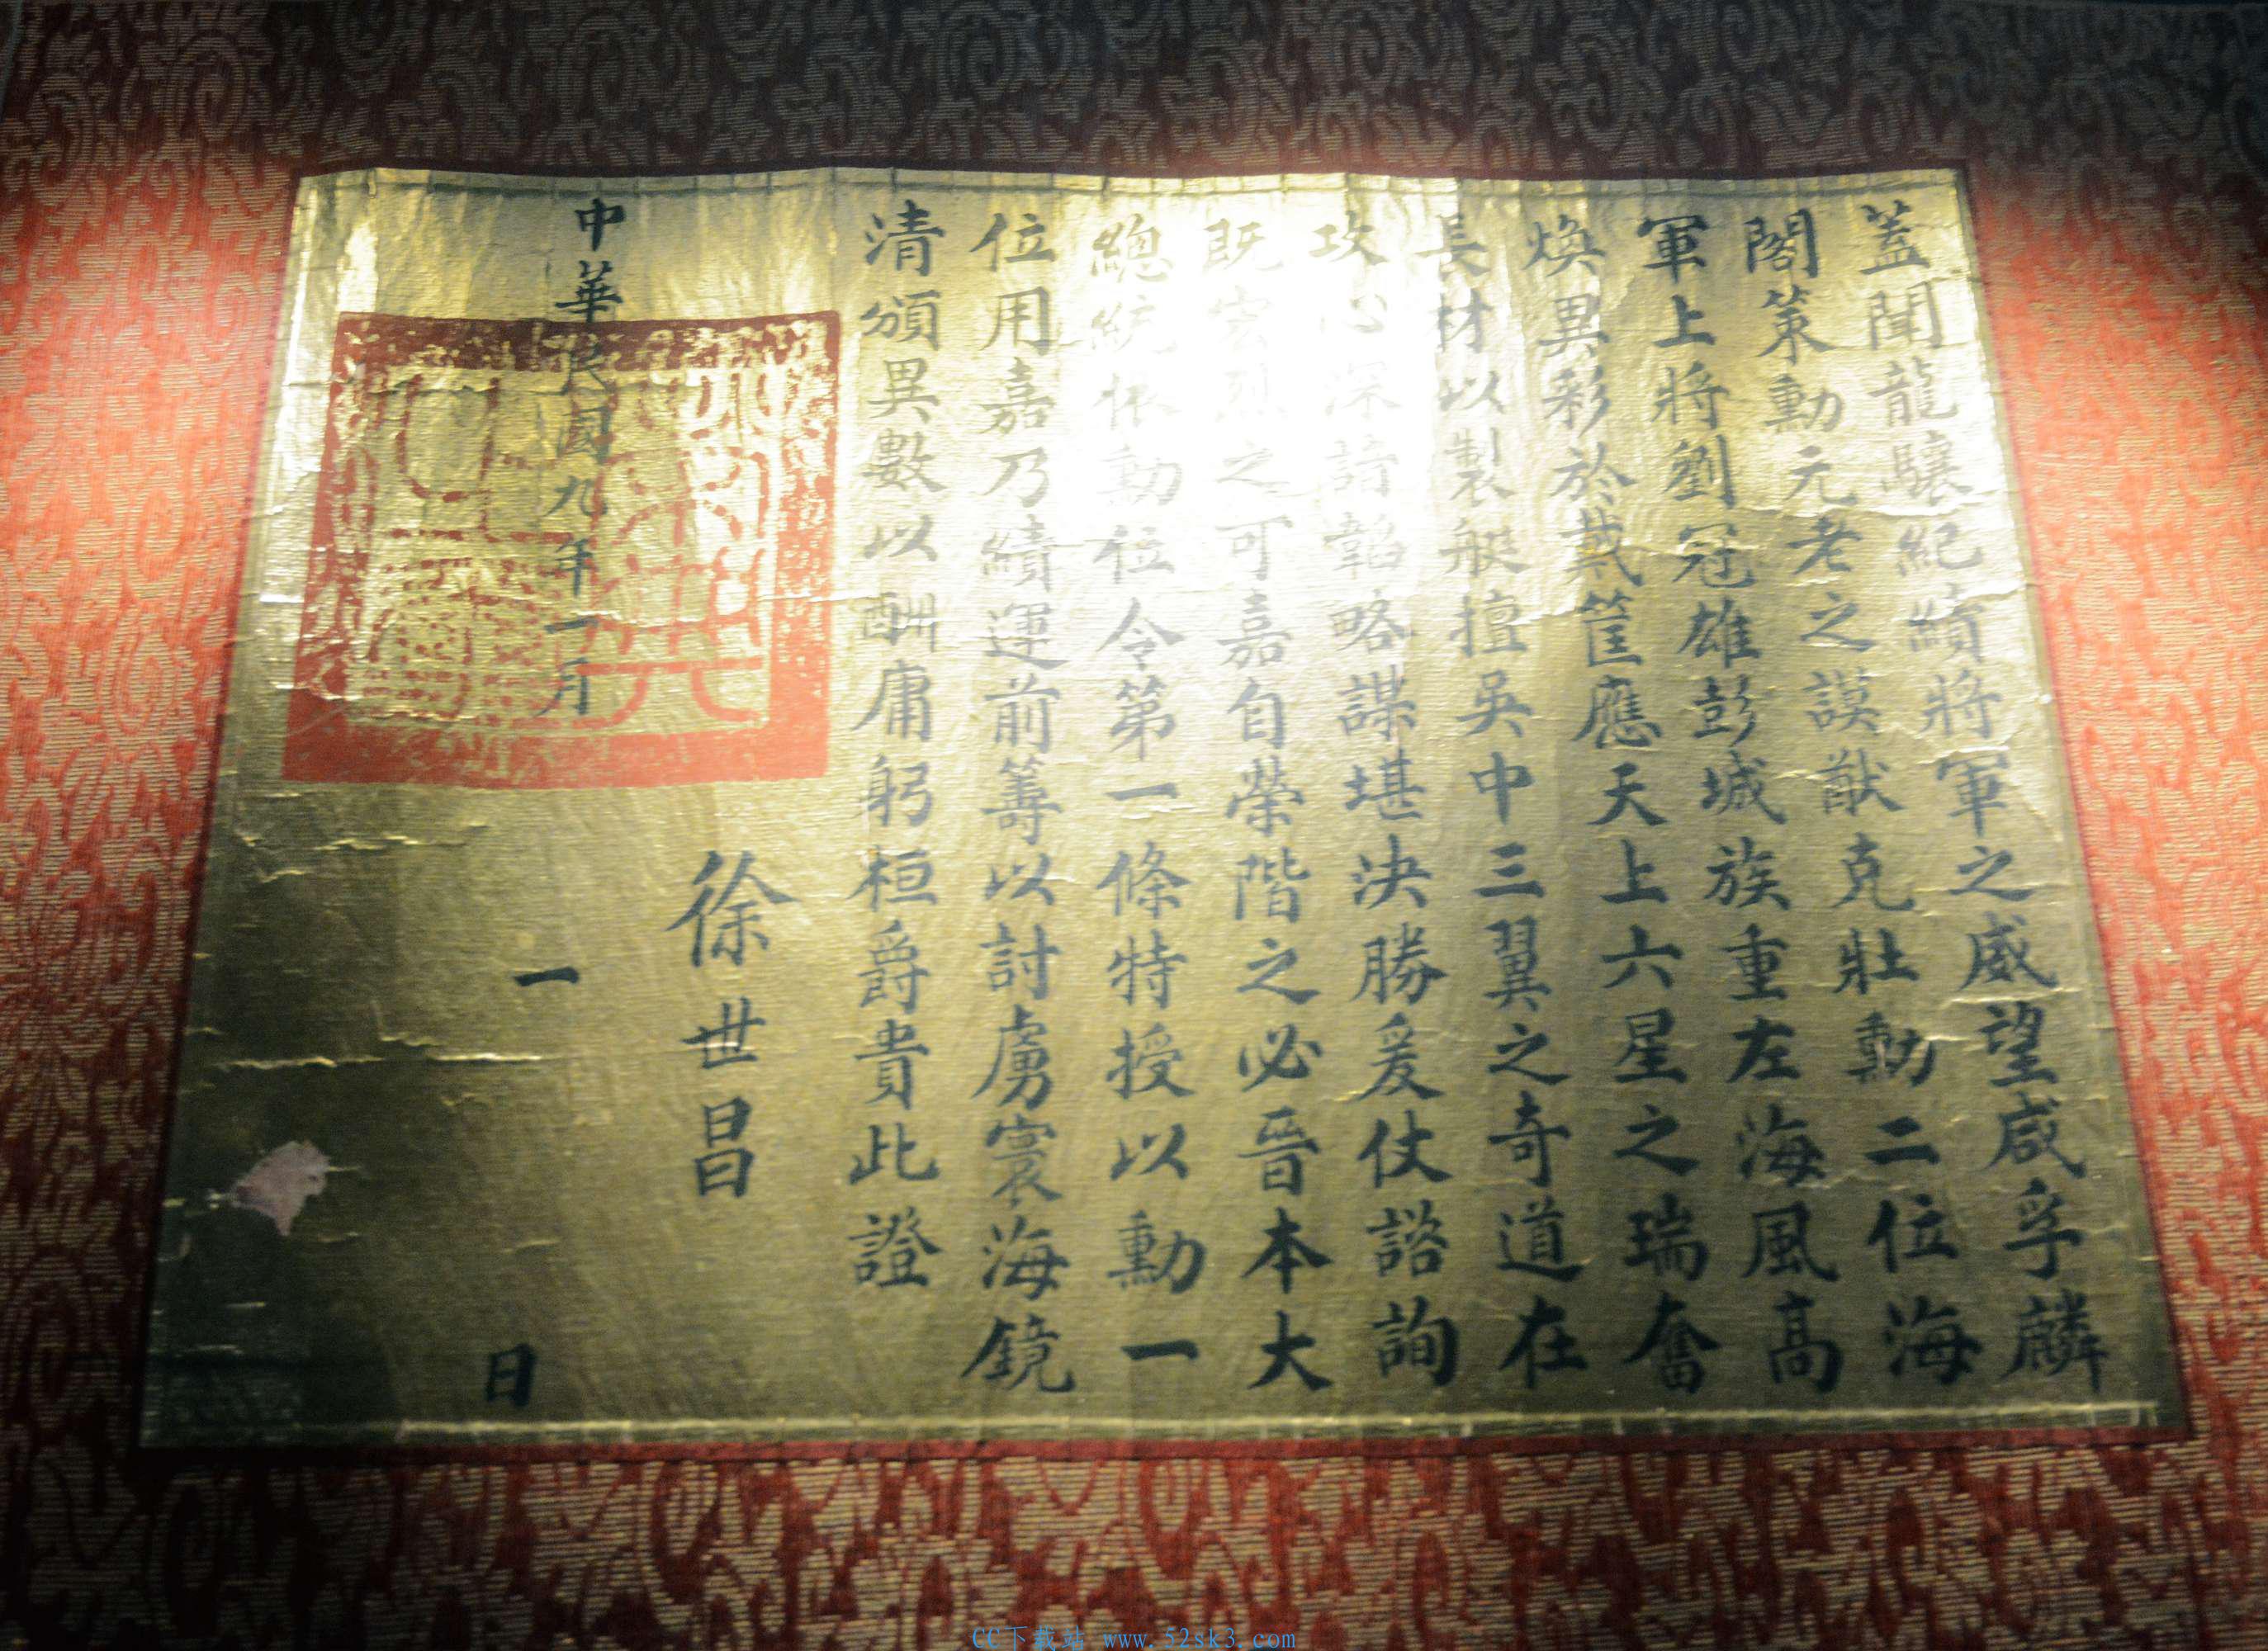 蓋聞龍驤紀績將軍之威望咸孚麟
閣策勳元老之謨猷克壯勳二位海
軍上將劉冠雄彭城族重左海風高
煥異彩於戴筐應天上六星之瑞奮
長材以製艇擅吳中三翼之奇道在
攻心深諳韜略謀堪決勝爰仗諮詢
既宏烈之可嘉自榮階之必晉本大
總統根勳位令第一條特授以勳一
位用嘉乃績運前籌以討虜寰海鏡
清頒異數以酬庸躬桓爵貴此證
徐世昌
中華民國九年一月一日
CC下载站 www.52sk3.com